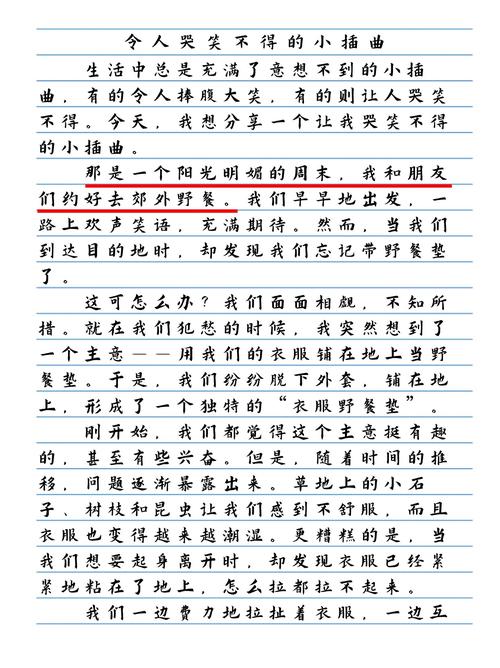 令人哭笑不得的小插曲
生活中总是充满了意想不到的小插
曲，有的令人捧腹大笑，有的则让人哭笑
不得。今天，我想分享一个让我哭笑不得
的小插曲。
那是一个阳光明媚的周末，我和朋友
们约好去郊外野餐。我们早早地出发，一
路上欢声笑语，充满期待。然而，当我们
到达目的地时，却发现我们忘记带野餐垫
了。
这可怎么办？我们面面相觑，不知所
措。就在我们犯愁的时候，我突然想到了
一个主意——用我们的衣服铺在地上当野
餐垫。于是，我们纷纷脱下外套，铺在地
上，形成了一个独特的“衣服野餐垫”。
刚开始，我们都觉得这个主意挺有趣
的，甚至有些兴奋。但是，随着时间的推
移，问题逐渐暴露出来。草地上的小石
子、树枝和昆虫让我们感到不舒服，而且
衣服也变得越来越潮湿。更糟糕的是，当
我们想要起身离开时，却发现衣服已经紧
紧地粘在了地上，怎么拉都拉不起来。
我们一边费力地拉扯着衣服，一边互